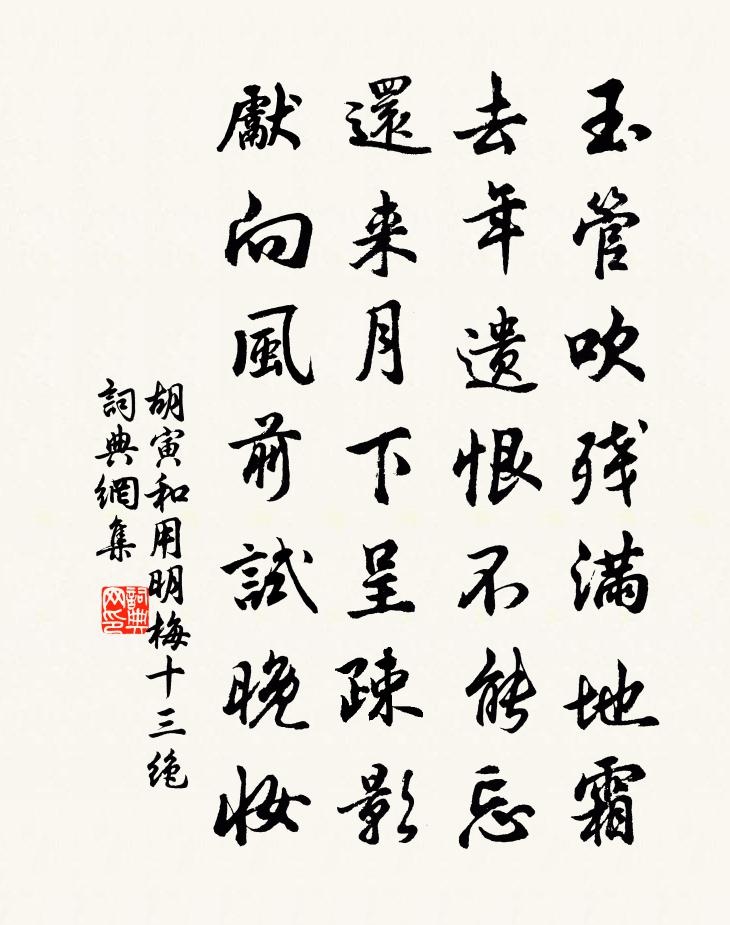 玉管吹残满地霜
去年遗恨不能忘
還来月下呈疎影
獻向風前試晚妆
胡寅和用明梅十三绝
詞典網集
詞典
网印